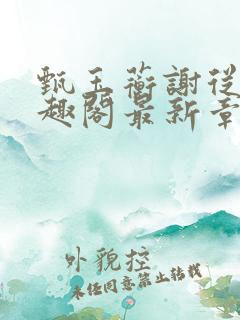 甄玉蘅謝從
趣閣最新章
外貌控
未经同意禁止转载